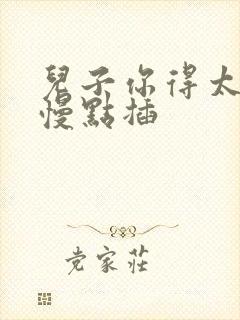 兒子你得太
慢點插
党家莊